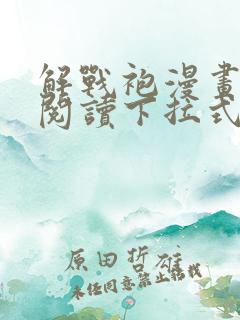 解戰袍漫畫
閱讀下拉式
原田哲雄
未經同意禁止轉載